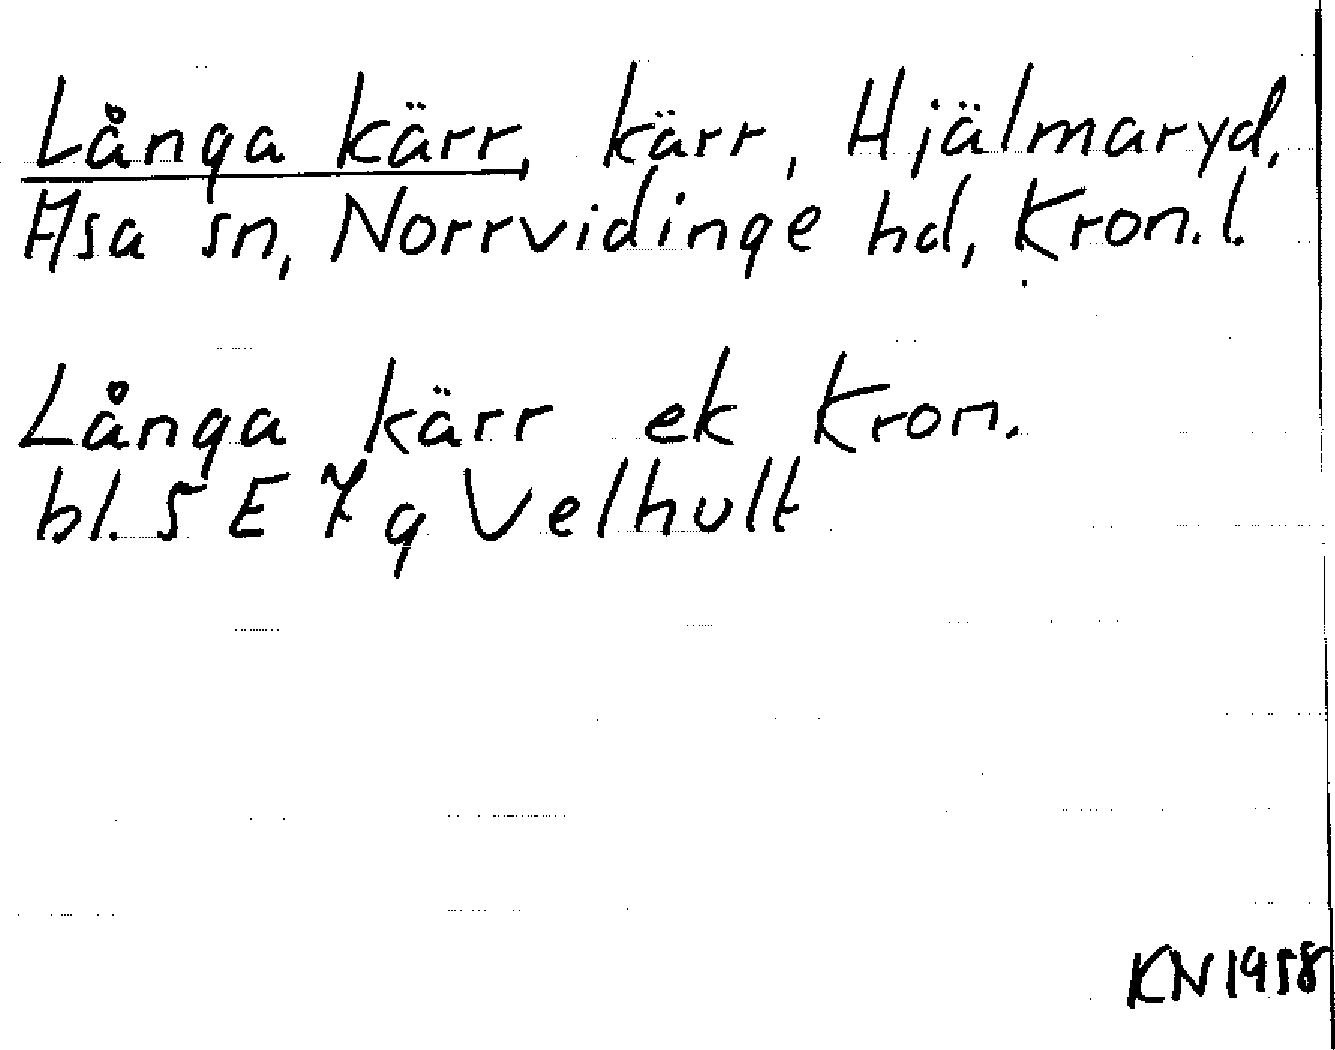 Långa kärr, kärr, Hjälmaryd,
Asa sn, Norrvidinge hd, Kron.l.
Långa kärr ek Kron.
bl. 5 E 7 g Velhult
KN 1958